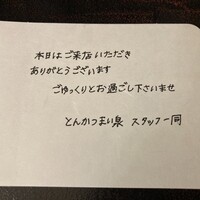 本日はご来店いただき
ありがとうございます
ごゆっくりとお過ごし下さいませ
とんかつまい泉 スタッフ一同